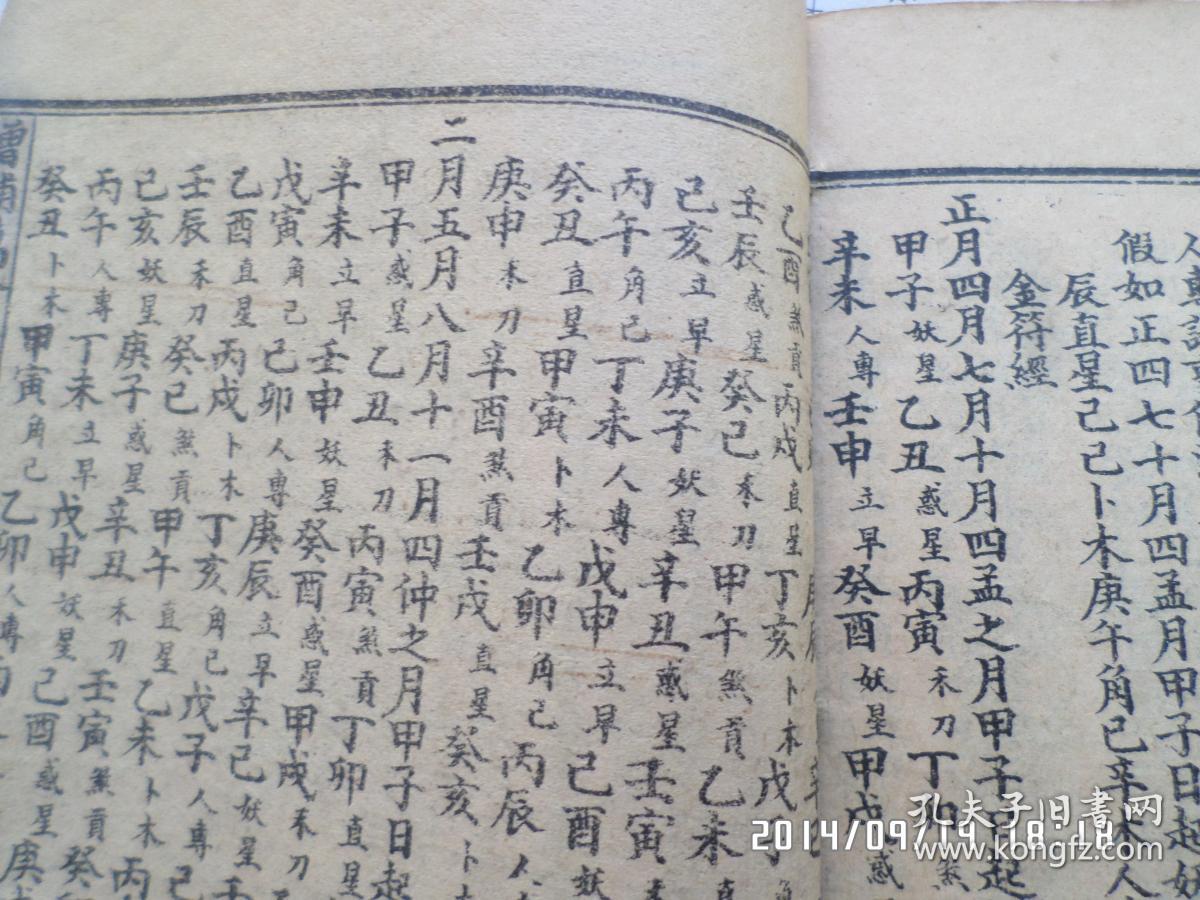 假如正四七十月四孟月甲子日起妖
辰直星己巳卜木庚午角己辛未人
金符經
正月四月七月十月四孟之月甲子日起
甲子妖星乙丑惑星丙寅禾刀丁卯煞
辛未人專壬申立早癸酉妖星甲戌惑
乙酉煞貢丙戌直星丁亥卜木戊子角
壬辰惑星癸巳禾刀甲午煞貢乙未直
己亥立早庚子妖星辛丑惑星壬寅
丙午角己丁未人專戊申立早己酉妖
癸丑直星甲寅卜木乙卯角己丙辰人
庚申禾刀辛酉煞貢壬戌直星癸亥卜
二月五月八月十一月四仲之月甲子日起
甲子惑星乙丑禾刀丙寅煞貢丁卯直星
辛未立早壬申妖星癸酉惑星甲戌禾刀
戊寅角己己卯人專庚辰立早辛巳妖星
乙酉直星丙戌卜木丁亥角己戊子人專
壬辰禾刀癸巳煞貢甲午直星乙未卜木
己亥妖星庚子惑星辛丑禾刀壬寅煞貢癸
丙午人專丁未立早戊申妖星己酉惑星庚
癸丑卜木甲寅角己乙卯人專
增補
孔夫子旧書网
www.kongfz.com
2014/09/19 18:18